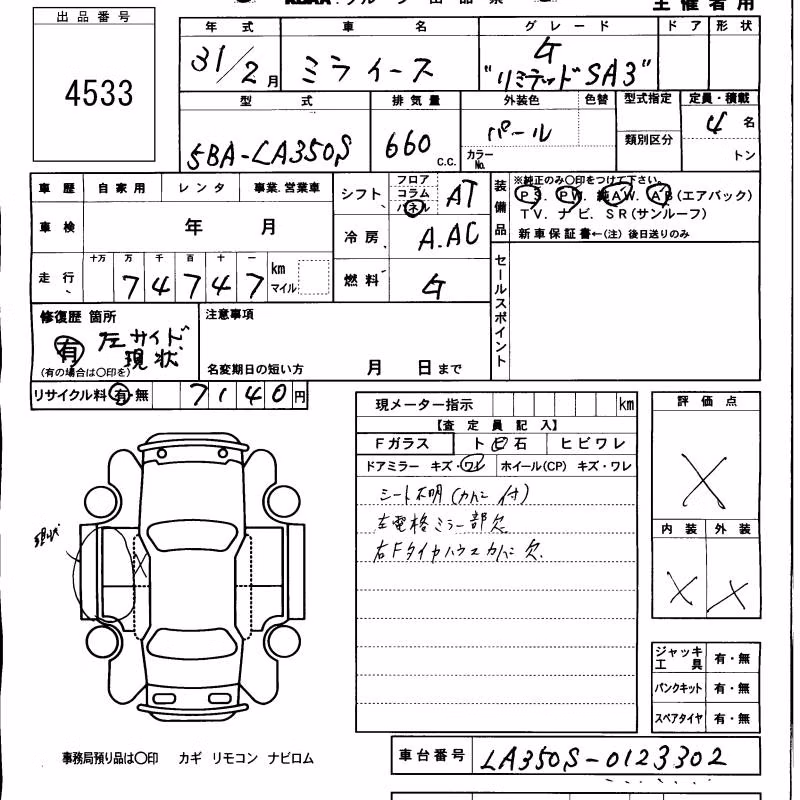 主催者用
出品番号
4533
年式 車名 グレード ドア 形状
31/2月 ミライース G "リミテッドSA3"
型式 排気量 外装色 色替 型式指定 定員・積載
5BA-LA350S 660 C.C. パール カラーNo. 類別区分 4名
トン
車歴 自家用 レンタ 事業.営業車
車検 年 月
走行 十万 万 千 百 十 一
74747 km マイル
シフト フロア コラム パネル AT
冷房 A.AC
燃料 G
装備品 ※純正のみ〇印をつけて下さい。
PS. PW. 純AW. AB(エアバック)
TV. ナビ. SR(サンルーフ)
新車保証書←(注)後日送りのみ
セールスポイント
修復歴 箇所
有 左サイド.現状
(有の場合は〇印を)
注意事項
名変期日の短い方 月 日まで
リサイクル料 有 無 7140円
現メーター指示 km
【査定員記入】
Fガラス ト 石 ヒビワレ
ドアミラー キズ・ワレ ホイール(CP) キズ・ワレ
シート不明(カバー付)
左電格ミラー部欠
右Fタイヤハウスカバー欠.
評価点
X
内装 外装
X X
現状
X
ジャッキ工具 有・無
パンクキット 有・無
スペアタイヤ 有・無
事務局預り品は〇印 カギ リモコン ナビロム
車台番号 LA350S-0123302